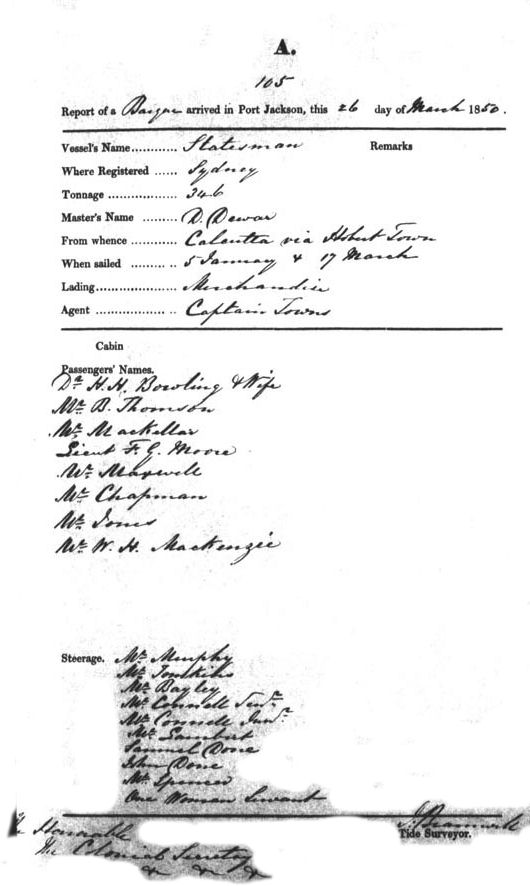 A.
105
Report of a Barque arrived in Port Jackson, this 26 day of March 1850.
Vessel's Name............ Statesman Remarks
Where Registered ...... Sydney
Tonnage .................. 346
Master's Name ......... D. Dewar
From whence ............ Calcutta via Hobart Town
When sailed ......... .. 5 January & 17 March
Lading..................... Merchandise
Agent .................. .. Captain Towns
Cabin
Passengers' Names.
Dr. H. H. Bowling & Wife
Mr. B. Thomson
Mr. Mackellar
Lieut F. G. Moore
Mr. Maxwell
Mr. Chapman
Mr. Jones
Mr. W. H. Mackenzie
Steerage. Mr. Murphy
Mr. Tomkins
Mr. Bagley
Mr. Connell Senr.
Mr. Connell Junr.
Mr. Lambert
Samuel Done
John Done
Mr. Spencer
One Woman Servant
The Honorable
The Colonial Secretary
Tide Surveyor.